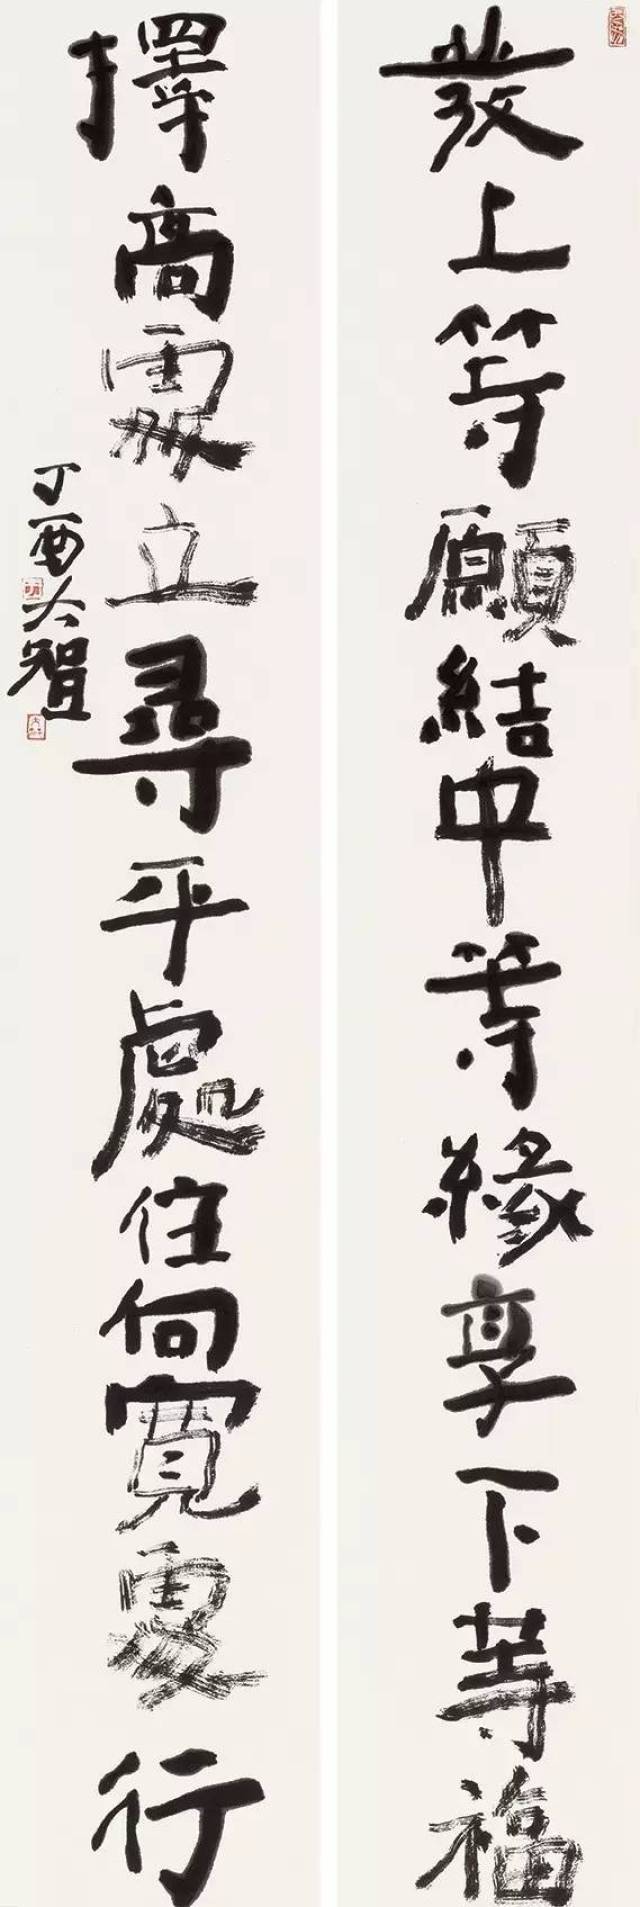 發上等願結中等緣享下等福
擇高處立尋平處住向寬處行
丁酉大智